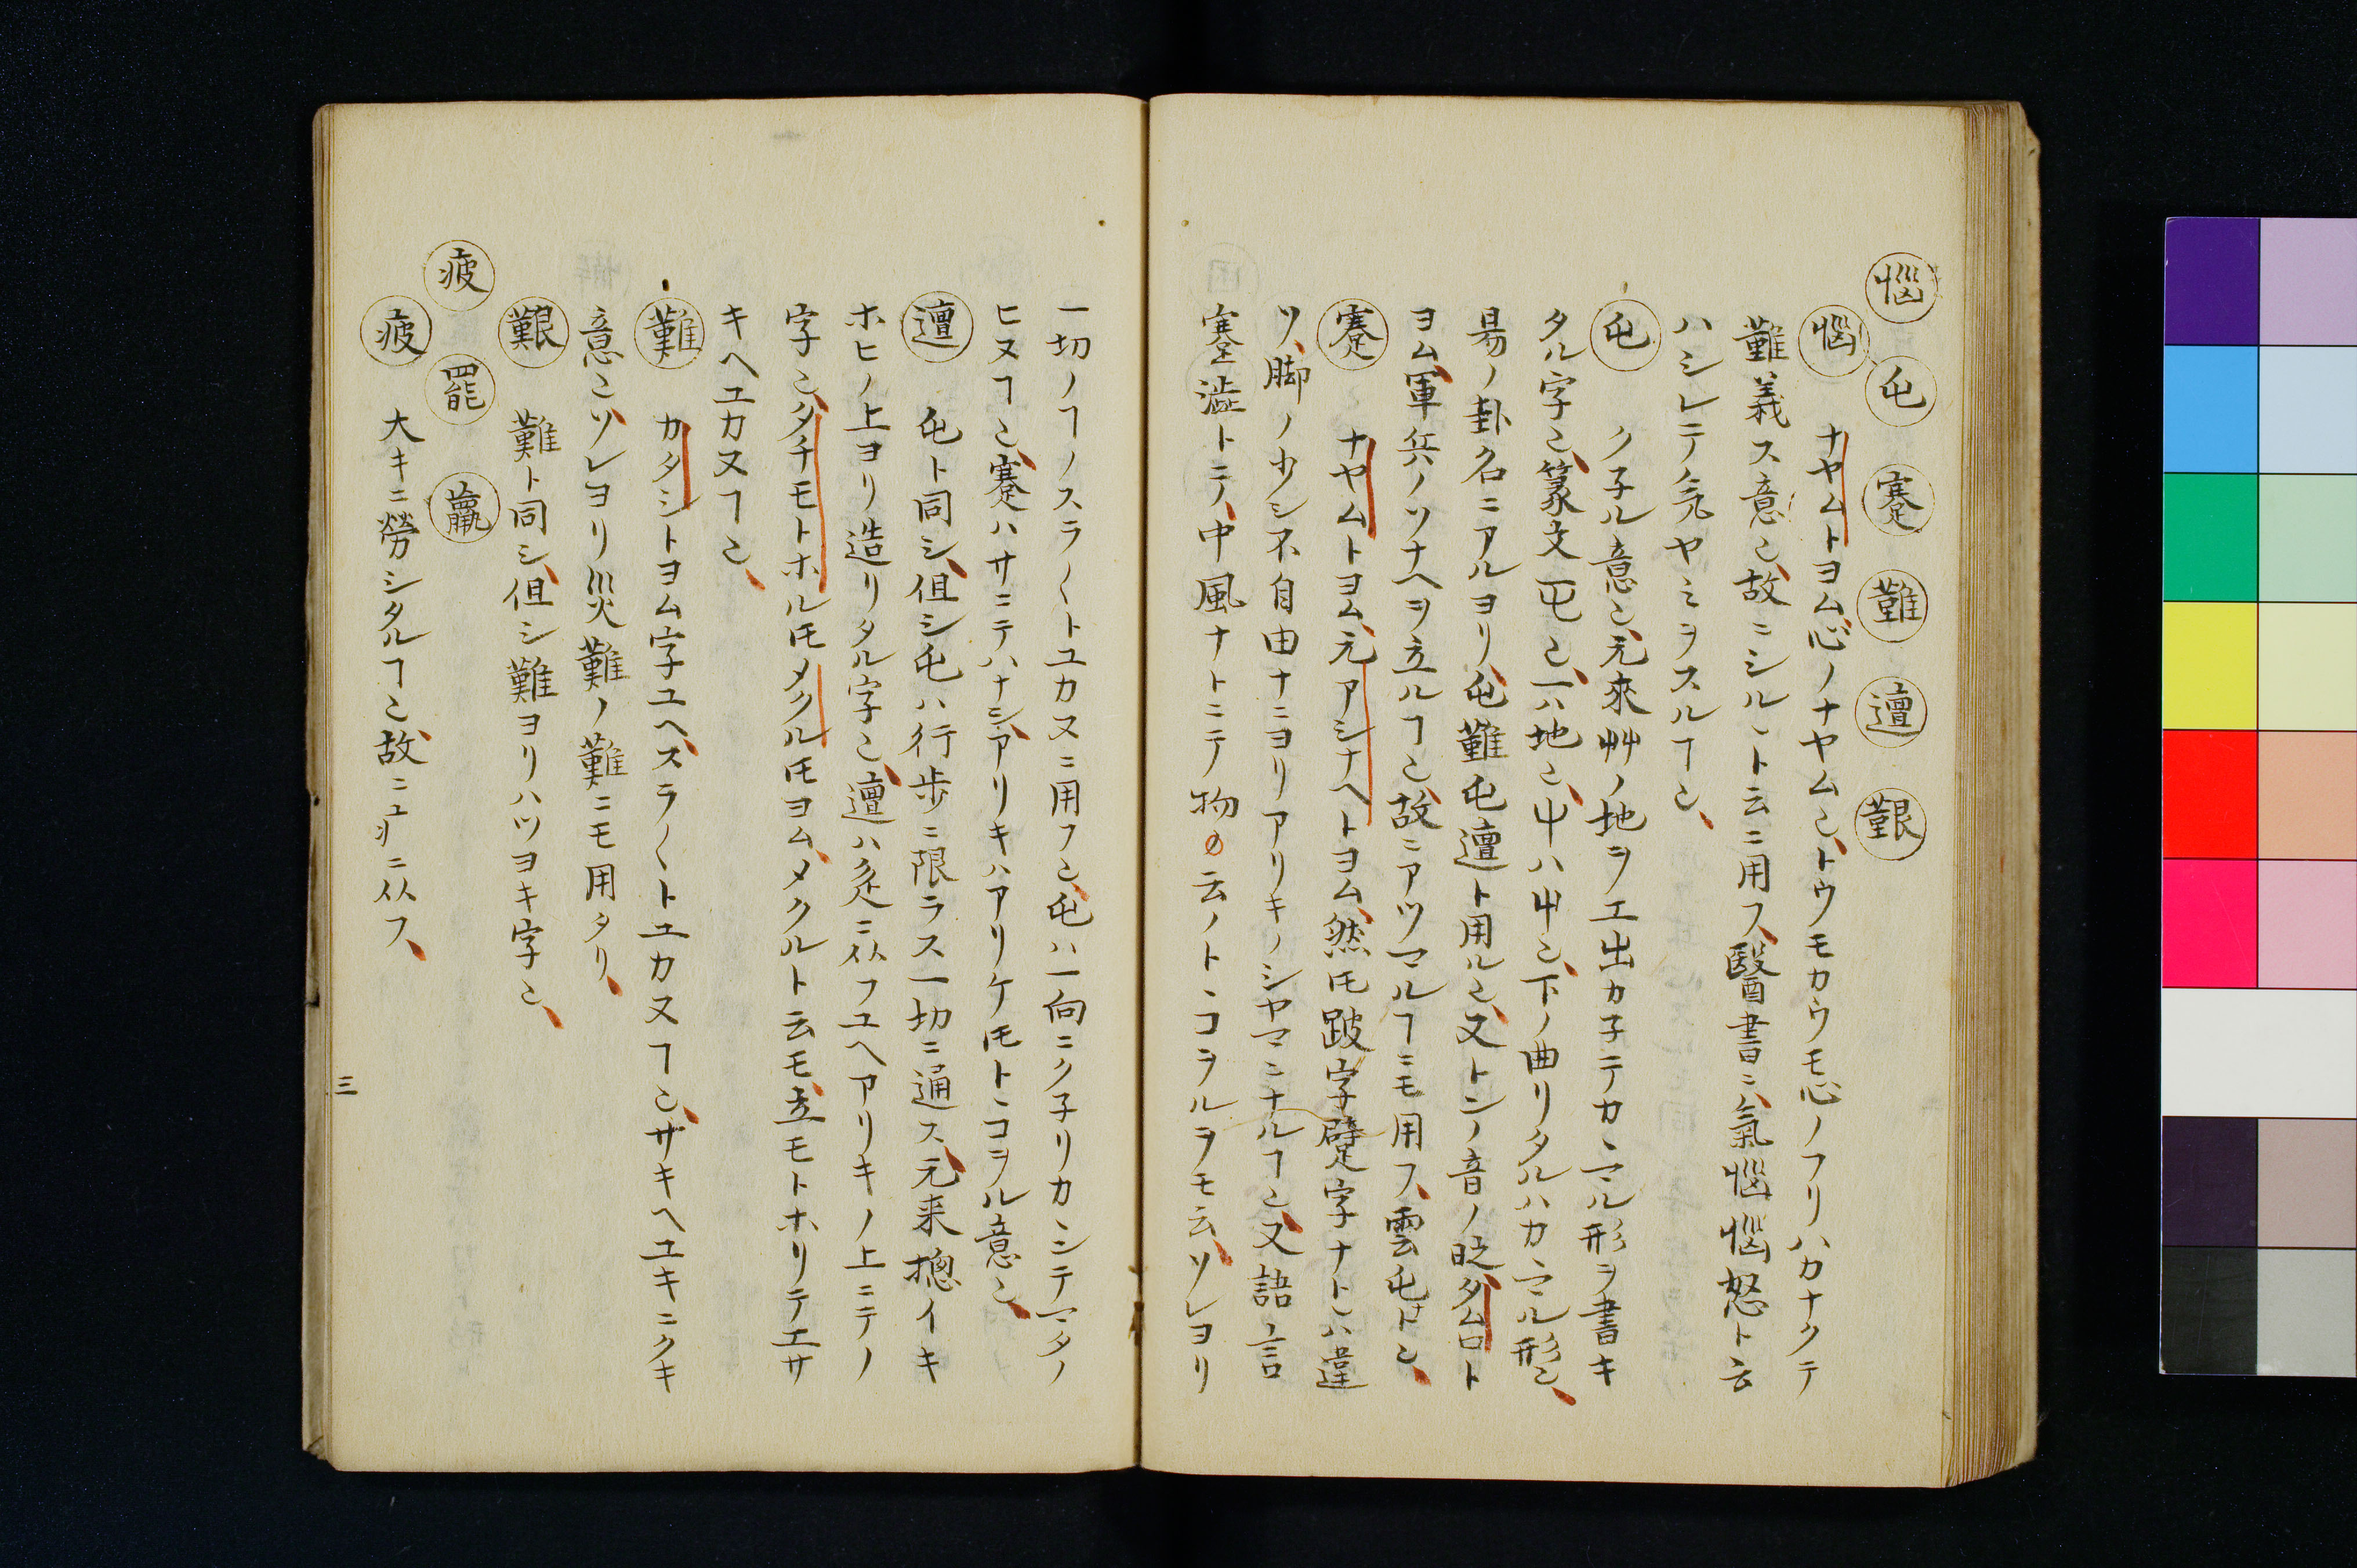 惱 屯 蹇 難 邅 艱
惱 ナヤムトヨム心ノナヤムヿ也トウモカウモ心ノフリハカナクテ
難義ス意也故ニシルヽト云ニ用ス醫書ニハ氣惱惱怒ト云
ハシレテ気ヤミヲスルヿ也
屯 クネル意也元來艸ノ地ヲエ出カネテカヽマル形ヲ書キ
タル字也篆文屯也一ハ地也屮ハ艸也下ノ曲リタルハカヽマル形也
易ノ卦名ニアルヨリ屯難屯邅ト用ル也又トンノ音ノ時タムロト
ヨム軍兵ノソナヘヲ立ルヿ也故ニアツマルヿニモ用フ雲屯ナト也
蹇 ナヤムトヨム元アシナヘトヨム然𪜈跛字躄字ナトヽハ違
ツ脚ノ少シ不自由ナニヨリアリキノシヤマニナルヿ也又語言
蹇澁トテ中風ナトニテ物云ノトヽコヲルヲモ云ソレヨリ
一切ノヿノスラ〱トユカヌニ用フ也屯ハ一向ニクネリカヽンテマタノ
ヒヌヿ也蹇ハサニテハナシアリキハアリケ𪜈トヽコヲル意也
邅 屯ト同シ但シ屯ハ行歩ニ限ラス一切ニ通ス元来摠イキ
ホヒノ上ヨリ造リタル字也邅ハ辵ニ从フユヘアリキノ上ニテノ
字也タチモトホル𪜈メクル𪜈ヨムメクルト云モ立モトホリテエサ
キヘユカヌヿ也
難 カタシトヨム字ユヘスラ〱トユカヌヿ也サキヘユキニクキ
意也ソレヨリ災難ノ難ニモ用タリ
艱 難ト同シ但シ難ヨリハツヨキ字也
疲 罷 羸
疲 大キニ勞シタルヿ也故ニ疒ニ从フ
三